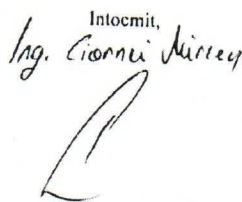 Intocmit,
Ing. Ciornei Mircea